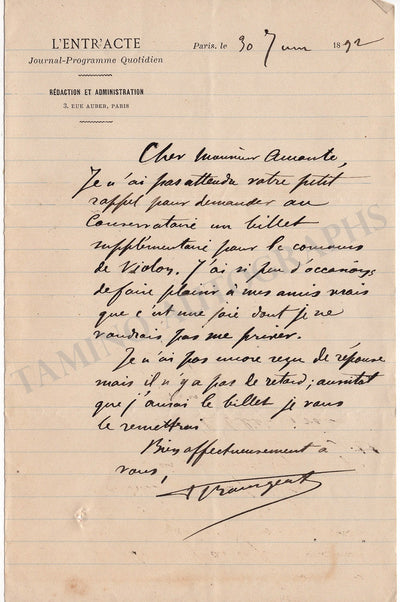 L'ENTR'ACTE
Journal-Programme Quotidien
RÉDACTION ET ADMINISTRATION
3, RUE AUBER, PARIS
Paris, le 30 Juin 1892
Cher Monsieur
Je n'ai pas attendu votre petit
rappel pour demander au
Conservatoire un billet
supplémentaire pour le concours
de Violon. J'ai si peu d'occasions
de faire plaisir à mes amis vrais
que c'est une joie dont je ne
voudrais pas me priver.
Je n'ai pas encore reçu de réponse
mais il n'y a pas de retard; aussitôt
que j'aurai le billet je vous
le remettrai
Bien affectueusement à
vous,
TAMINO AUTOGRAPHS